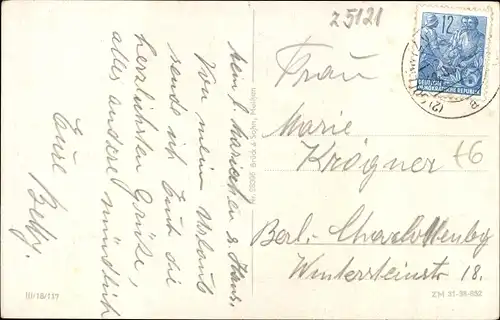 Mein l. Mariechen & Hans.
Von mein Urlaub
sende ich Euch die
herzlichsten Grüße,
alles andere mündlich
Eure
Betty.
III/18/117
No. 5395 Brück & Sohn, Meißen
Z5121
12
DEUTSCHE
DEMOKRATISCHE REPUBLIK
Frau
Marie
Krögner
Berl.-Charlottenbg
Wintersteinstr 18.
ZM 31-38-852